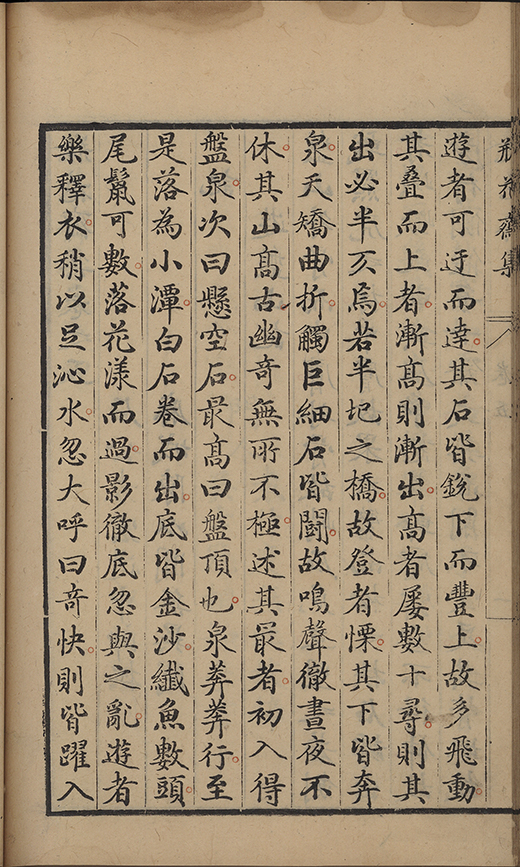 瓶花齋集
遊者可迂而達其石皆銳下而豐上故多飛動
其疊而上者漸髙則漸出髙者屢數十尋則其
出必半仄焉若半圮之橋故登者慄其下皆奔
泉夭矯曲折觸巨細石皆鬪故鳴聲徹晝夜不
休其山髙古幽竒無所不極述其最者初入得
盤泉次曰懸空石最髙曰盤頂也泉莽莽行至
是落為小潭白石卷而出底皆金沙纖魚數頭
尾鬣可數落花漾而過影徹底忽與之亂遊者
樂釋衣稍以足沁水忽大呼曰竒快則皆躍入